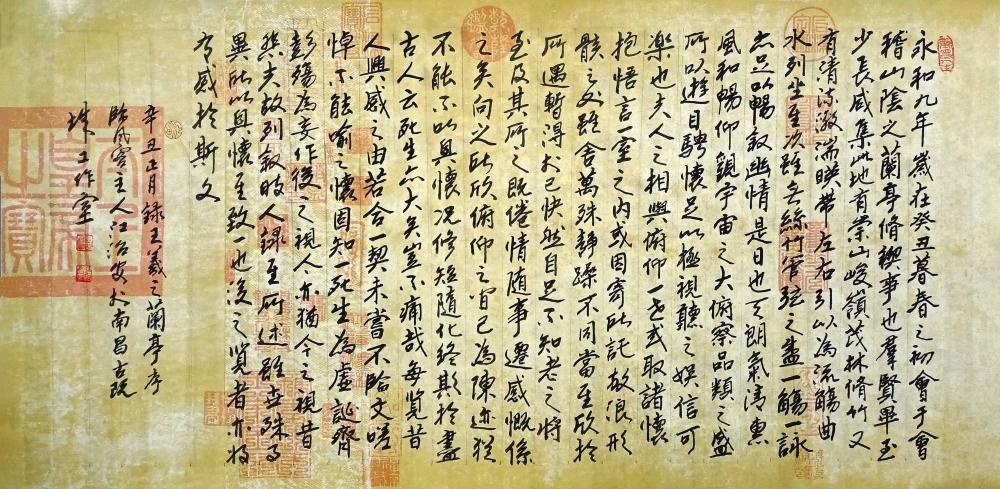 永和九年歲在癸丑暮春之初會于會
稽山陰之蘭亭脩禊事也羣賢畢至
少長咸集此地有崇山峻領茂林脩竹又
有清流激湍暎帶左右引以為流觴曲
水列坐其次雖無絲竹管弦之盛一觴一詠
亦足以暢敘幽情是日也天朗氣清惠
風和暢仰觀宇宙之大俯察品類之盛
所以遊目騁懷足以極視聽之娛信可
樂也夫人之相與俯仰一世或取諸懷
抱悟言一室之內或因寄所託放浪形
骸之外雖舍萬殊靜躁不同當其欣於
所遇暫得於己快然自足不知老之將
至及其所之既倦情隨事遷感慨係
之矣向之所欣俯仰之間已為陳迹猶
不能不以興懷況脩短隨化終期於盡
古人云死生亦大矣豈不痛哉每覽昔
人興感之由若合一契未嘗不臨文嗟
悼不能喻之懷固知一死生為虛誕齊
彭殤為妄作後之視今亦猶今之視昔
悲夫故列敘時人錄其所述雖世殊事
異所以興懷其致一也後之覽者亦將
有感於斯文
辛丑正月錄王羲之蘭亭序
臨風主人江治安於南昌古玩
工作室